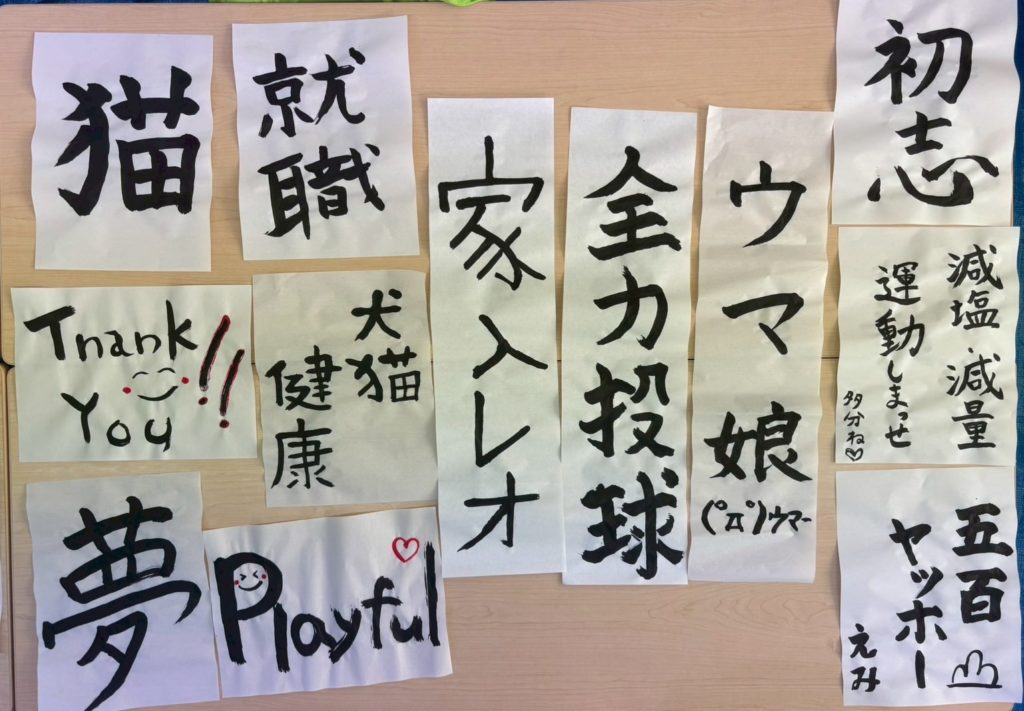 猫
就
職
Thank
You
!!
犬猫
健康
夢
Playful
家入レオ
全力投球
ウマ娘
(ﾟДﾟ)ウマー
初志
減塩・減量
運動しまっせ
多分ね♡
五百
ヤッホー
えみ